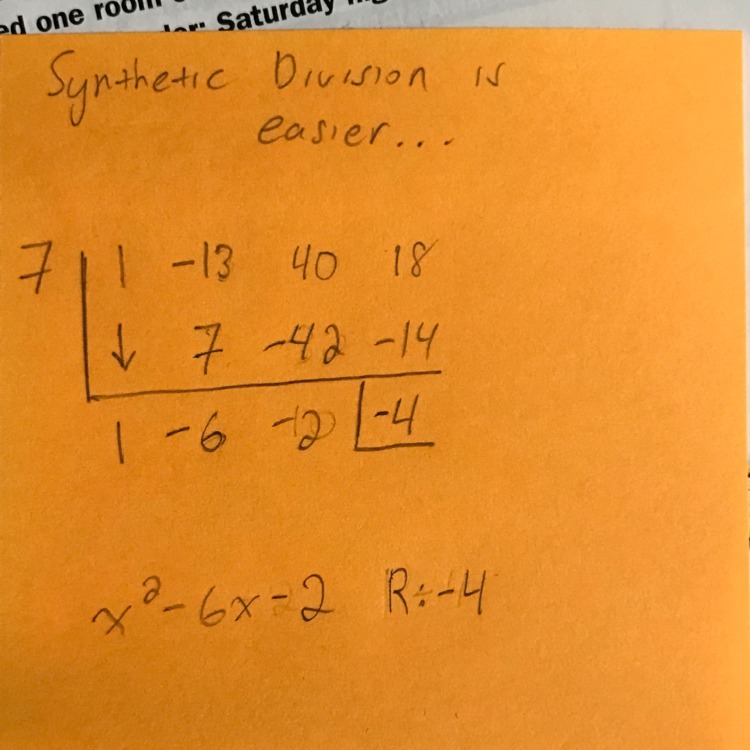 ed one room
Saturday
Synthetic Division is
easier...
7 1 -13 40 18
↓ 7 -42 -14
1 -6 -2 -4
x² - 6x - 2 R: -4